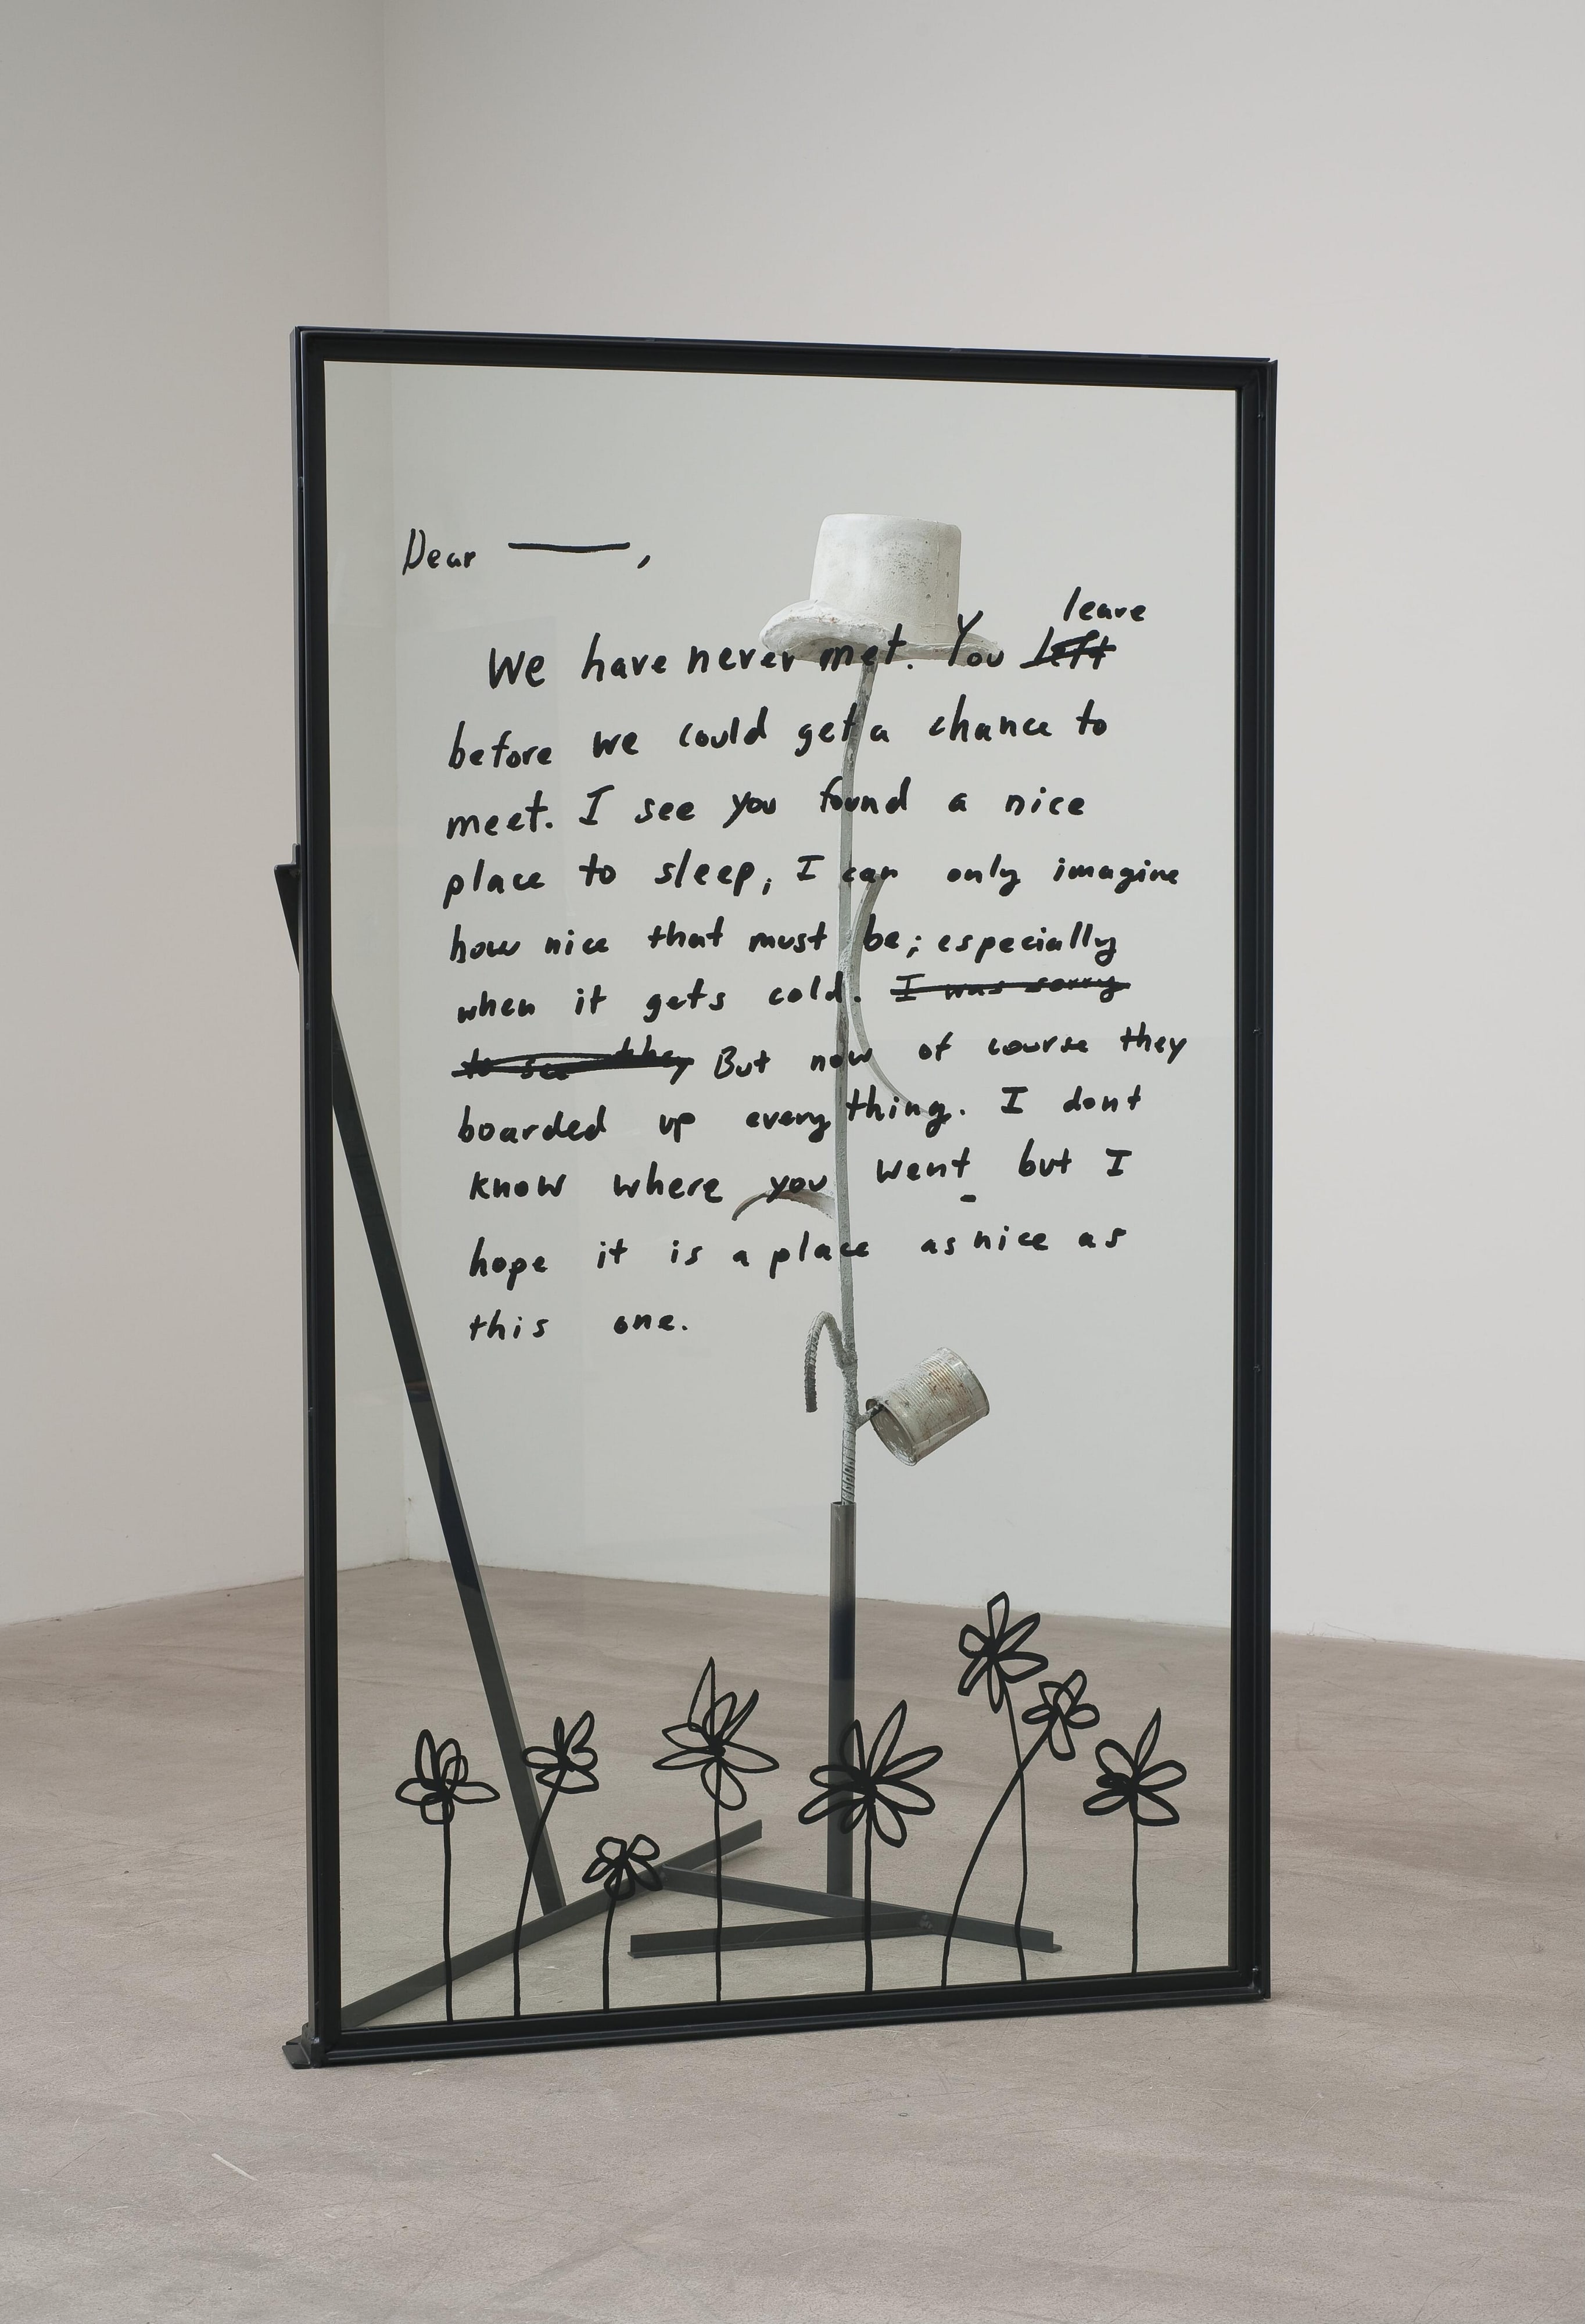 Dear ———,
We have never met. You left leave
before we could get a chance to
meet. I see you found a nice
place to sleep, I can only imagine
how nice that must be; especially
when it gets cold. I was sorry
to see they But now of course they
boarded up everything. I dont
know where you went but I
hope it is a place as nice as
this one.